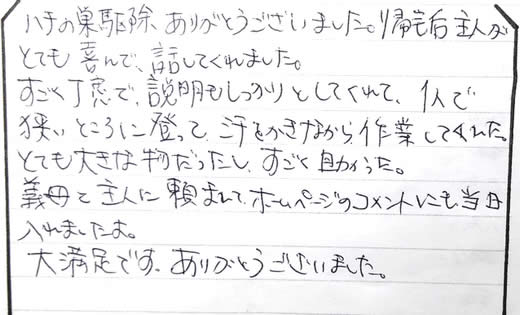 ハチの巣駆除、ありがとうございました。帰宅后主人が
とても喜んで、話してくれました。
すごく丁寧で、説明もしっかりとしてくれて、1人で
狭いところに登って、汗をかきながら、作業してくれた。
とても大きな物だったし、すごく助かった。
義母と主人に頼まれて、ホームページのコメントにも、当日
入れましたよ。
大満足です。ありがとうございました。